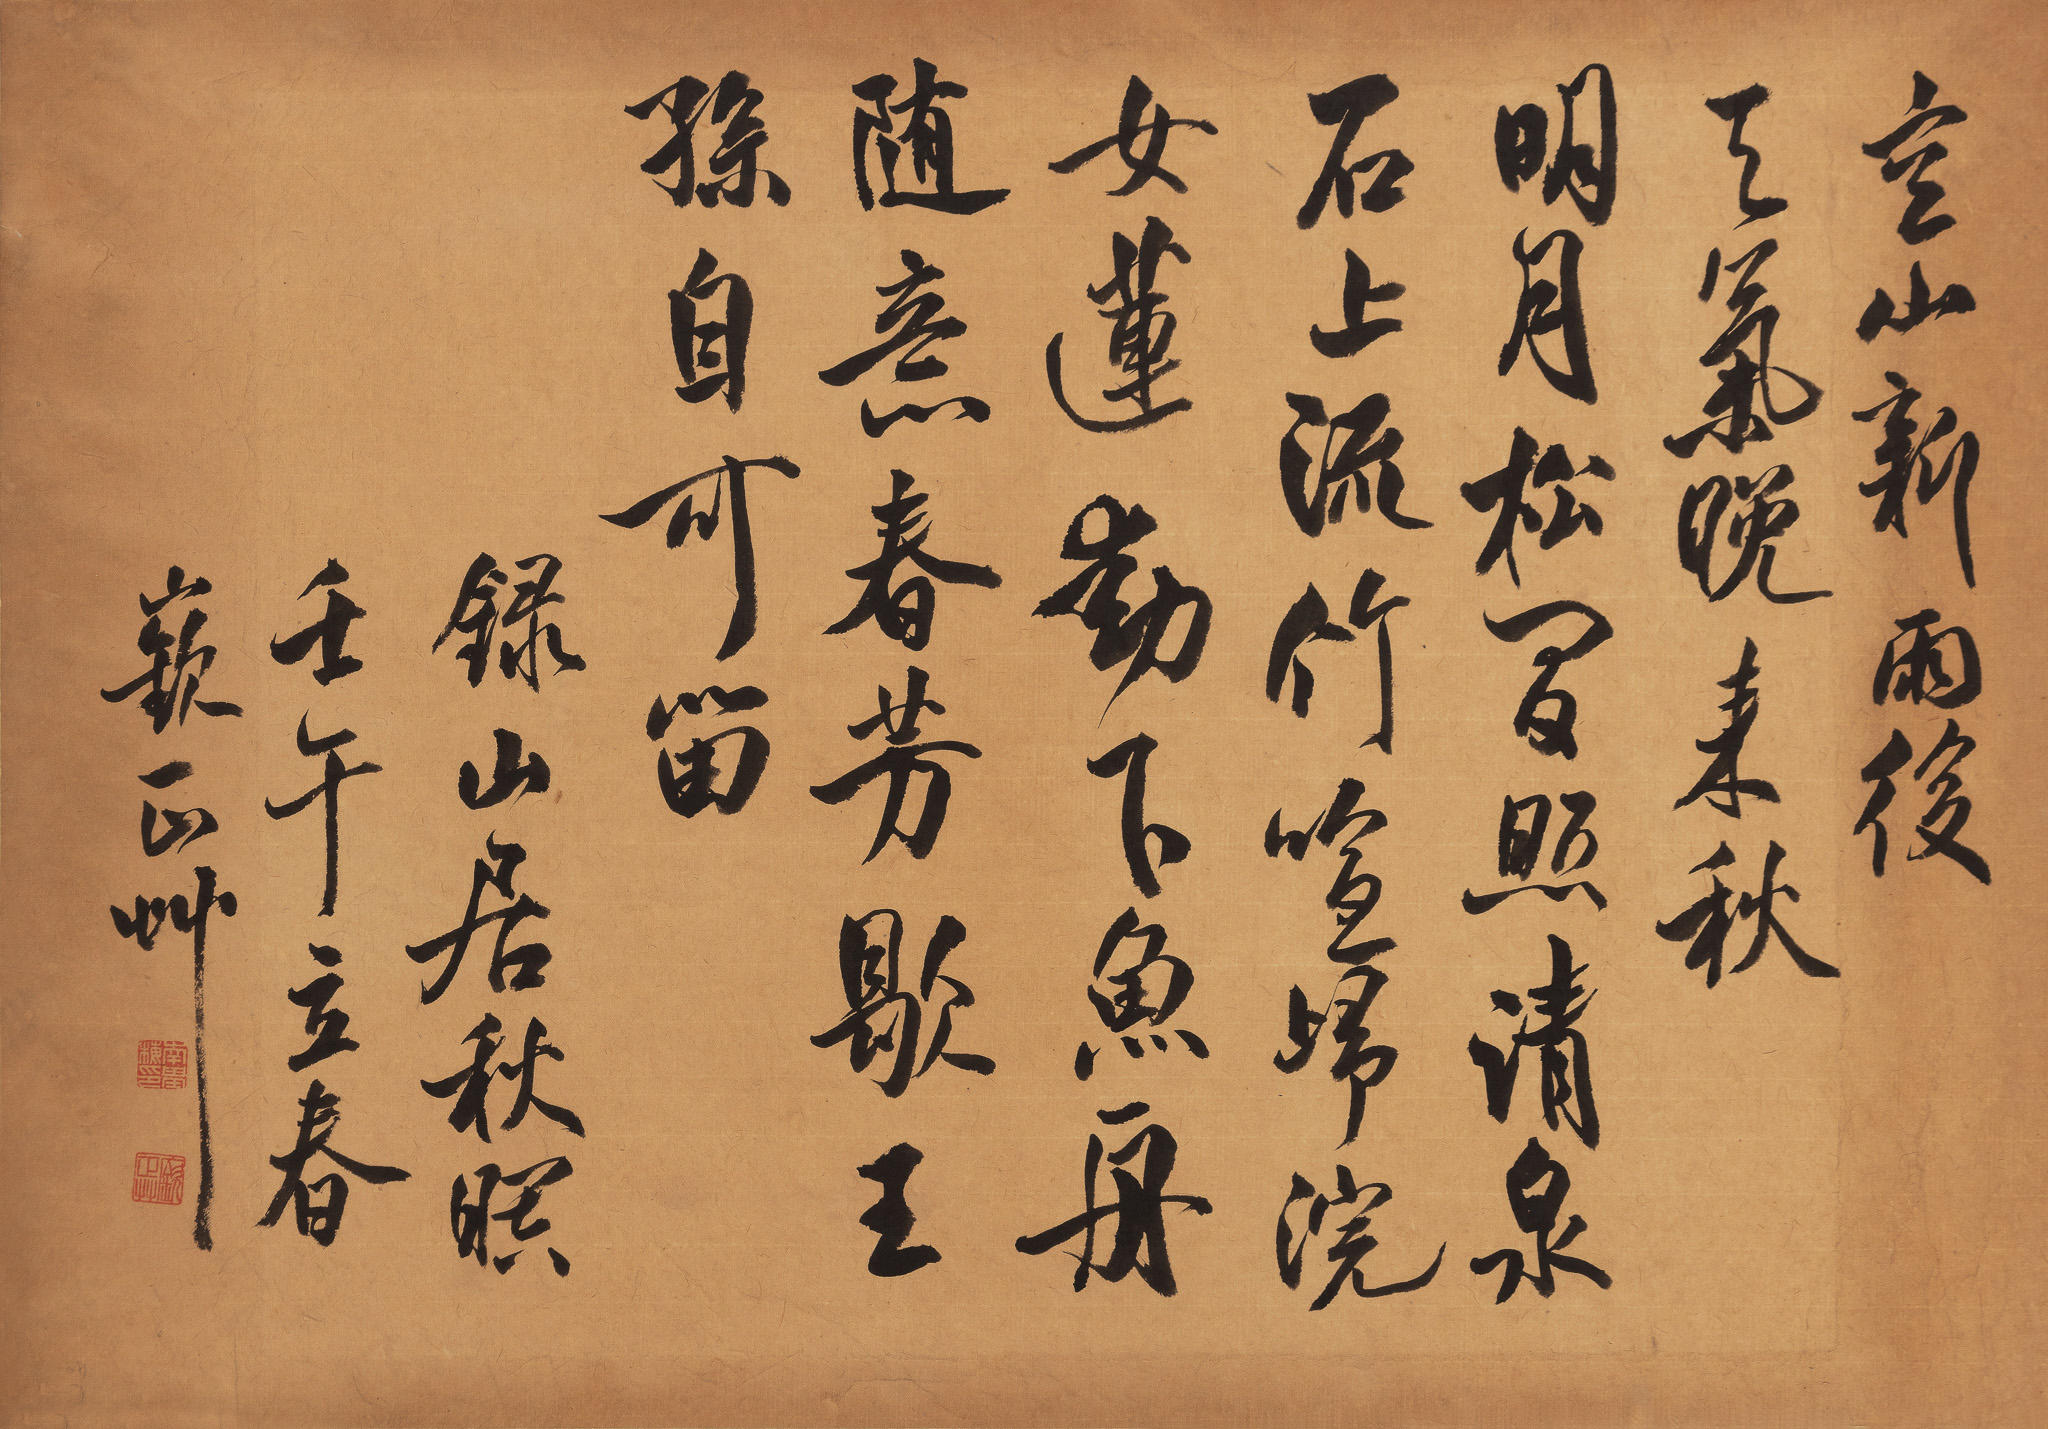 空山新雨後
天氣晚来秋
明月松間照清泉
石上流竹喧歸浣
女蓮動下魚舟
随意春芳歇王
孫自可留
録山居秋暝
壬午立春
嶔正艸